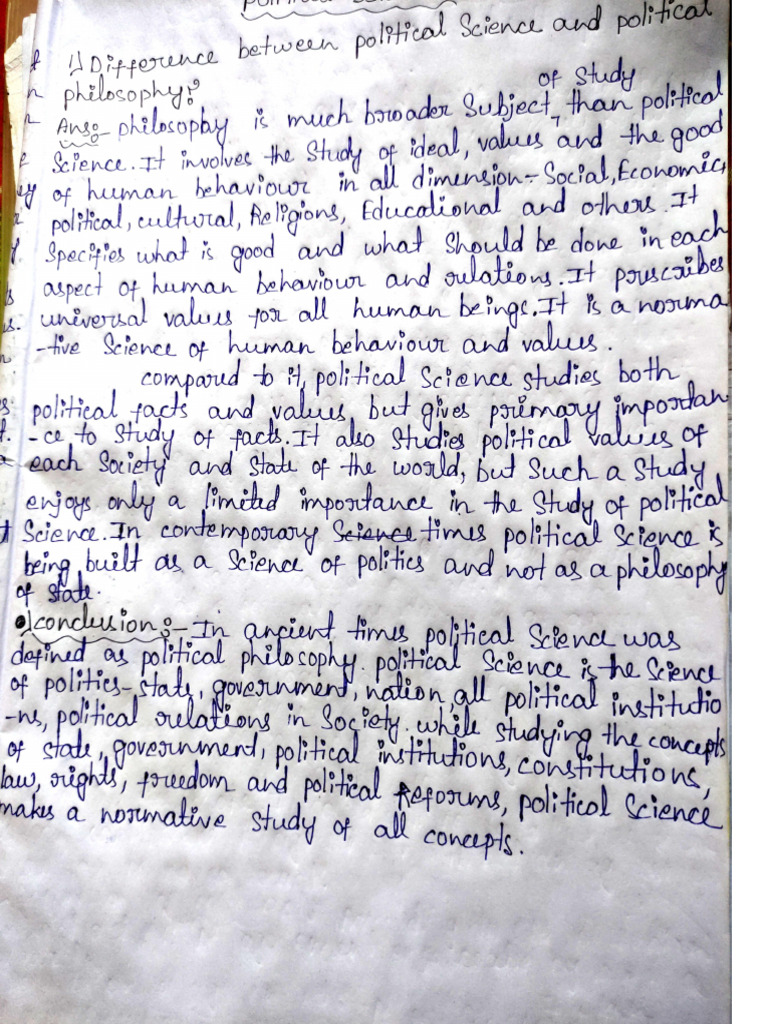 1) Difference between political Science and political
philosophy?
Ans:- philosophy is much broader Subject of Study than political
Science. It involves the Study of ideal, values and the good
of human behaviour in all dimension - Social, Economic,
political, cultural, Religions, Educational and others. It
Specifies what is good and what Should be done in each
aspect of human behaviour and relations. It prescribes
universal values for all human beings. It is a norma
-tive Science of human behaviour and values.
compared to it, political Science studies both
political facts and values, but gives primary importan
-ce to Study of facts. It also Studies political values of
each Society and State of the world, but Such a Study
enjoys only a limited importance in the Study of political
Science. In contemporary Science times political Science is
being built as a Science of politics and not as a philosophy
of state.
conclusion:- In ancient times political Science was
defined as political philosophy. political Science is the Science
of politics - state, government, nation, all political institutio
-ns, political relations in Society. while studying the concepts
of state, government, political institutions, constitutions,
law, rights, freedom and political Reforms, political Science
makes a normative Study of all concepts.